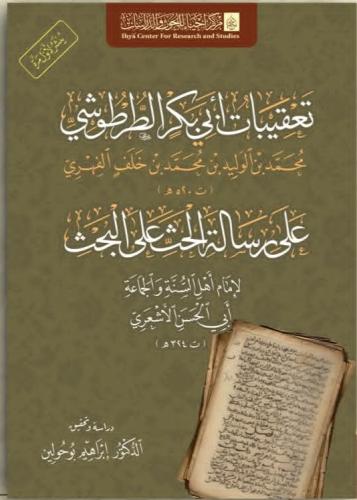 مركز إحياء للبحوث والدراسات
Ihyä Center For Research and Studies
ينشر لأول مرة
تعقيبات أبي بكر الطرطوشي
محمد بن الوليد بن محمد بن خلف الفهري
(ت ٥٢٠ هـ)
على رسالة الحث على البحث
لإمام أهل السنة والجماعة
أبي الحسن الأشعري
(ت ٣٢٤ هـ)
دراسة وتحقيق
الدكتور إبراهيم بوحولين